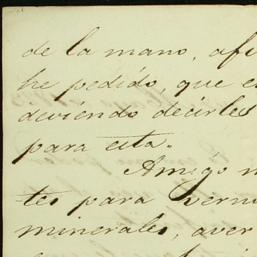 de la mano, afi
he pedido, que e
deviendo decirles
para esta.
Amigo m
tes para verni
minerales, aver